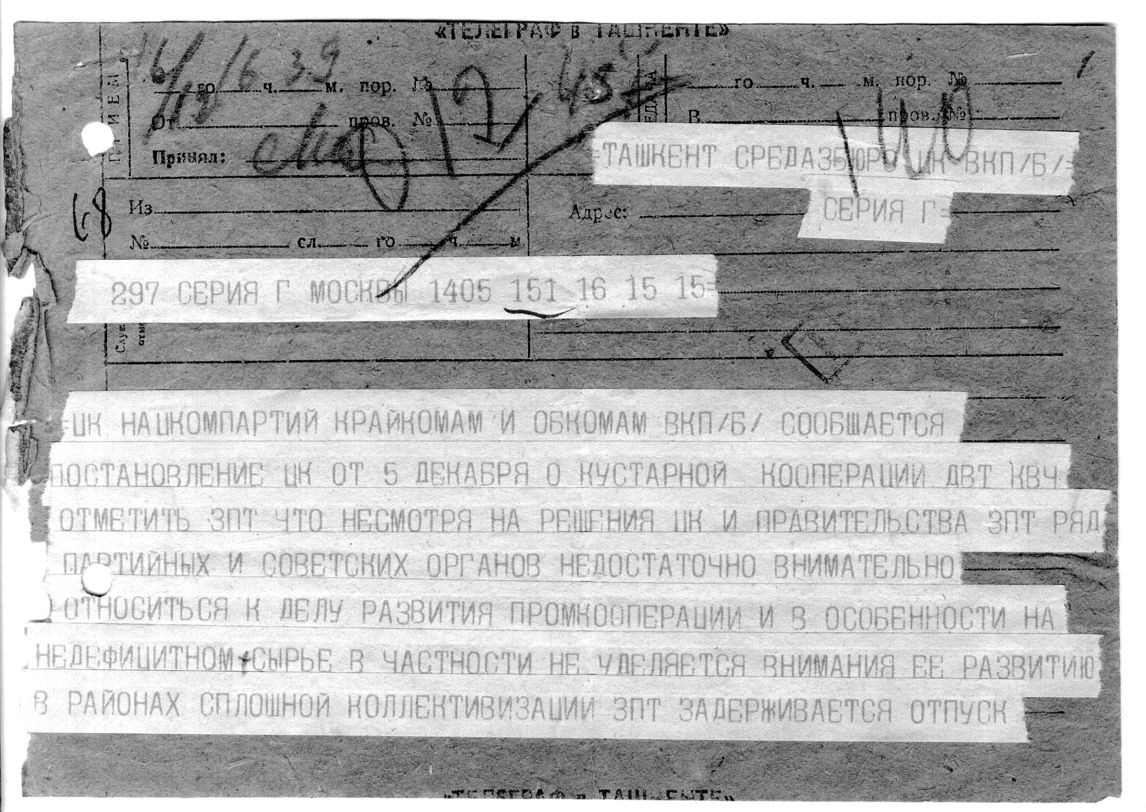 «ТЕЛЕГРАФ в ТАШКЕНТЕ»
ПРИЕМ
16/ го 16 ч. 39 м. пор. №
го ч. м. пор. №
От пров. №
В пров. №
Принял:
140
=ТАШКЕНТ СРЕДАЗБЮРО ЦК ВКП/Б/=
68
Из
Адрес:
СЕРИЯ Г=
№ сл. го ч. м.
297 СЕРИЯ Г МОСКВЫ 1405 151 16 15 15=
=ЦК НАЦКОМПАРТИЙ КРАЙКОМАМ И ОБКОМАМ ВКП/Б/ СООБШАЕТСЯ
ПОСТАНОВЛЕНИЕ ЦК ОТ 5 ДЕКАБРЯ О КУСТАРНОЙ КООПЕРАЦИИ ДВТ КВЧ
ОТМЕТИТЬ ЗПТ ЧТО НЕСМОТРЯ НА РЕШЕНИЯ ЦК И ПРАВИТЕЛЬСТВА ЗПТ РЯД
ПАРТИЙНЫХ И СОВЕТСКИХ ОРГАНОВ НЕДОСТАТОЧНО ВНИМАТЕЛЬНО
ОТНОСИТЬСЯ К ДЕЛУ РАЗВИТИЯ ПРОМКООПЕРАЦИИ И В ОСОБЕННОСТИ НА
НЕДЕФИЦИТНОМ СЫРЬЕ В ЧАСТНОСТИ НЕ УДЕЛЯЕТСЯ ВНИМАНИЯ ЕЕ РАЗВИТИЮ
В РАЙОНАХ СПЛОШНОЙ КОЛЛЕКТИВИЗАЦИИ ЗПТ ЗАДЕРЖИВАЕТСЯ ОТПУСК
«ТЕЛЕГРАФ в ТАШКЕНТЕ»